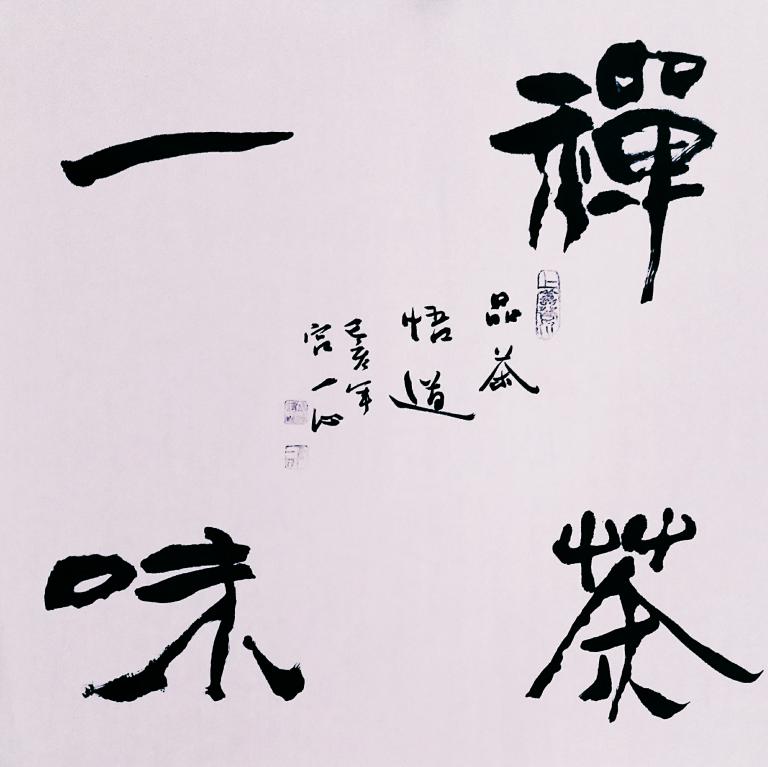 禪茶
一味
品茶
悟道
己亥年
宫一心